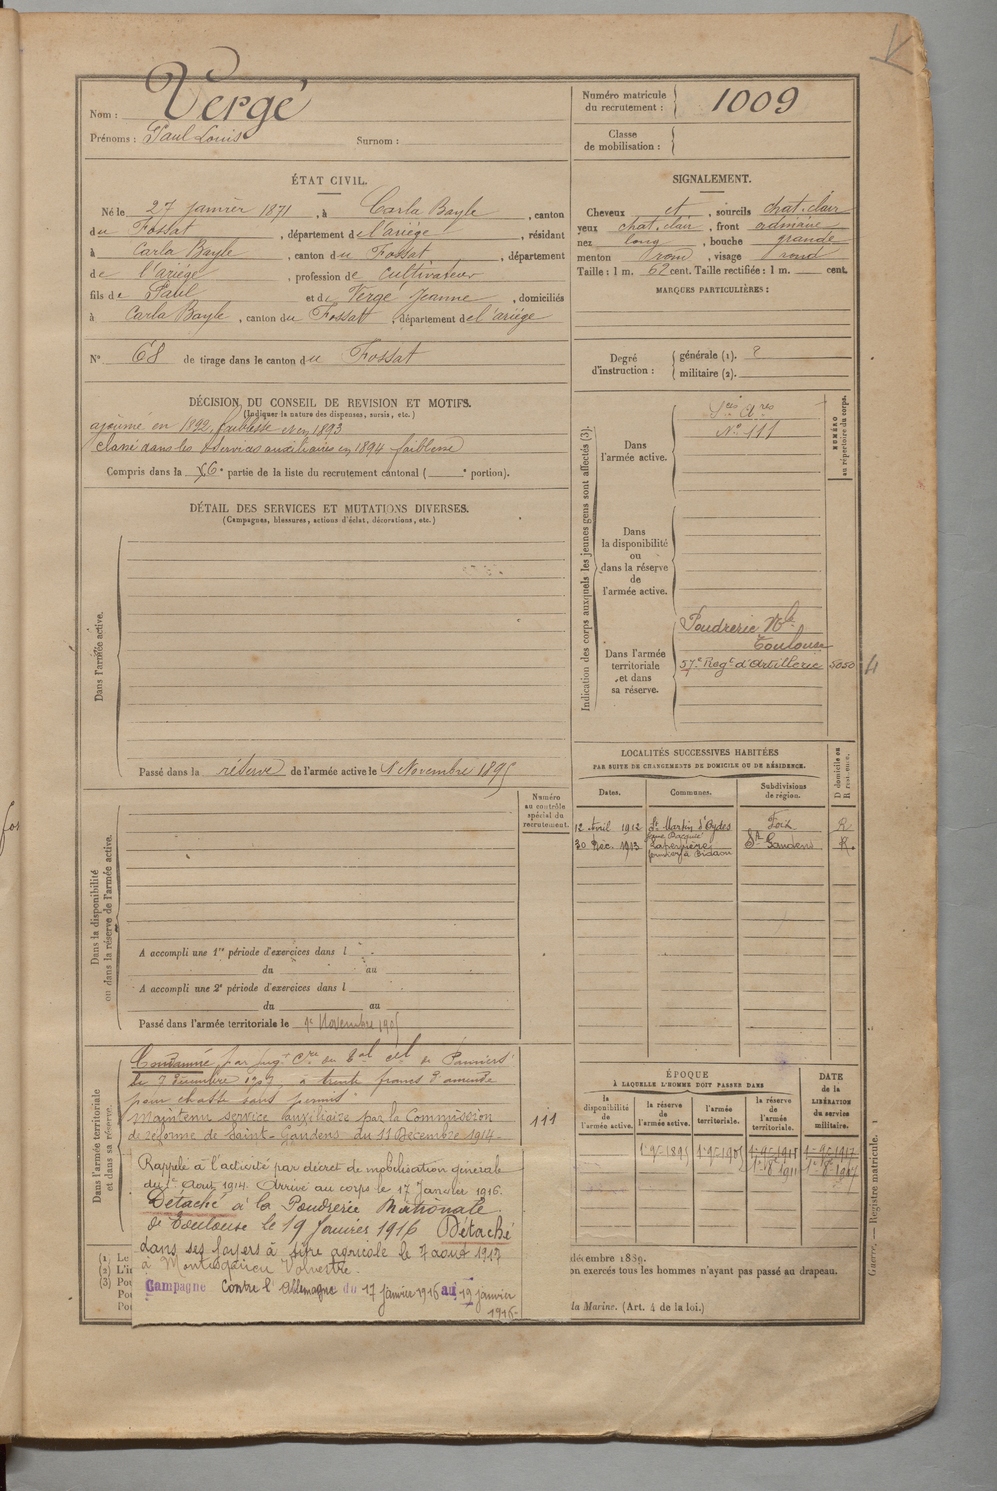 Nom : Vergé
Prénoms : Paul Louis Surnom :
Numéro matricule du recrutement : 1009
Classe de mobilisation :
ÉTAT CIVIL.
Né le 27 janvier 1871, à Carla Bayle, canton
du Fossat, département de l'ariége, résidant
à Carla Bayle, canton du Fossat, département
de l'ariége, profession de cultivateur
fils de Paul et de Vergé Jeanne, domiciliés
à Carla Bayle, canton du Fossat, département de l'ariége
N° 68 de tirage dans le canton du Fossat
SIGNALEMENT.
Cheveux et, sourcils chat. clair
yeux chat. clair, front ordinaire
nez long, bouche grande
menton rond, visage rond
Taille : 1 m. 62 cent. Taille rectifiée : 1 m. cent.
MARQUES PARTICULIÈRES :
Degré d'instruction : générale (1). 2
militaire (2).
DÉCISION DU CONSEIL DE REVISION ET MOTIFS.
(Indiquer la nature des dispenses, sursis, etc.)
ajourné en 1892, faiblesse et en 1893
classé dans les services auxiliaires en 1894 faiblesse
Compris dans la 6e partie de la liste du recrutement cantonal ( e portion).
DÉTAIL DES SERVICES ET MUTATIONS DIVERSES.
(Campagnes, blessures, actions d'éclat, décorations, etc.)
Dans l'armée active.
Passé dans la réserve de l'armée active le 1 Novembre 1895
Numéro au contrôle spécial du recrutement.
Dans la disponibilité ou dans la réserve de l'armée active.
A accompli une 1re période d'exercices dans l
du au
A accompli une 2e période d'exercices dans l
du au
Passé dans l'armée territoriale le 1er Novembre 1905
Dans l'armée territoriale et dans sa réserve.
Condamné par jugt Cre du Bal cel de Pamiers
le décembre à trente francs d'amende
pour chasse sans permis.
Maintenu service auxiliaire par la Commission
de réforme de Saint-Gaudens du 11 Décembre 1914.
111
Rappelé à l'activité par décret de mobilisation générale
du 1er Août 1914. Arrivé au corps le 17 Janvier 1916.
Détaché à la Poudrerie Nationale
de Toulouse le 19 Janvier 1916 Détaché
dans ses foyers à titre agricole le 7 août 1917
à Montesquieu Volvestre.
Campagne contre l'Allemagne du 17 janvier 1916 au 19 janvier
1916.
(1) Le
(2) L'i
(3) Pou
Pou
Pou
Indication des corps auxquels les jeunes gens sont affectés (3).
NUMÉRO au répertoire du corps.
Dans l'armée active.
Sces Ares
N° 111
Dans la disponibilité ou dans la réserve de l'armée active.
Dans l'armée territoriale et dans sa réserve.
Poudrerie Nle
Toulouse
57e Regt d'Artillerie 5050
LOCALITÉS SUCCESSIVES HABITÉES
PAR SUITE DE CHANGEMENTS DE DOMICILE OU DE RÉSIDENCE.
Dates. Communes. Subdivisions de région. D domicile ou R résidence.
12 Avril 1912 St Martin d'Oydes Foix R
30 Déc. 1913 St Gaudens R.
ÉPOQUE
À LAQUELLE L'HOMME DOIT PASSER DANS
la disponibilité de l'armée active. la réserve de l'armée active. l'armée territoriale. la réserve de l'armée territoriale.
DATE de la LIBÉRATION du service militaire.
1er 9e 1895 1er 9e 1905 1er 9e 1911 1er 9e 1917
1er 8e 1911 1er 8e 1917
décembre 1889.
on exercés tous les hommes n'ayant pas passé au drapeau.
la Marine. (Art. 4 de la loi.)
Guerre. — Registre matricule. 1